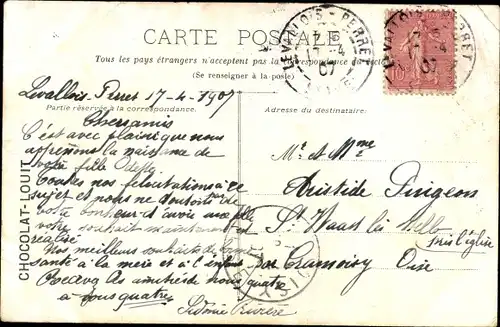 CARTE POSTALE
Tous les pays étrangers n'acceptent pas la correspondance
(Se renseigner à la poste)
LEVALLOIS-PERRET
17-4
07
Levallois Perret 17-4-1907
Partie réservée à la correspondance.
Adresse du destinataire:
Chers amis
C'est avec plaisir que nous
apprenons la naissance de
votre fille Odette
Toutes nos félicitations à ce
sujet et nous ne doutons pas
votre bonheur d'avoir une fille
votre souhait maintenant est
réalisé
Nos meilleurs souhaits de bonne
santé à la mère et à l'enfant
Recevez les amitiés de nous quatre
à vous quatre
Sidonie
Mr. et Mme
Aristide Pirigeon
St Waast les Mello
près l'église
par Cramoisy Oise
CHOCOLAT-LOUIT